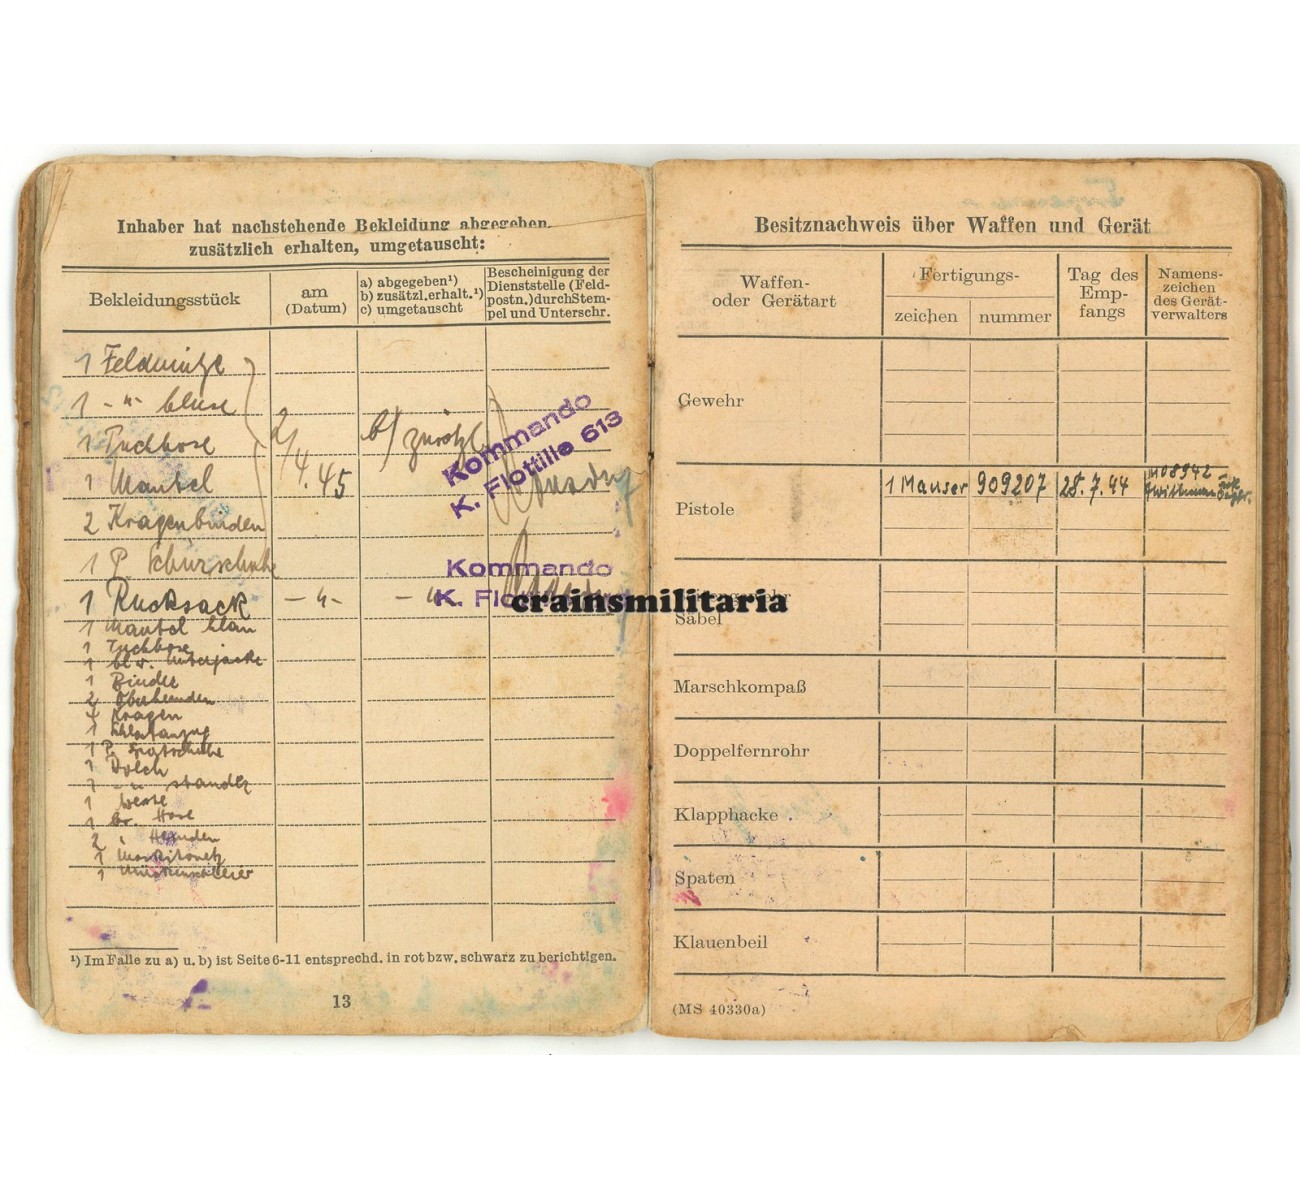 Inhaber hat nachstehende Bekleidung abgegeben,
zusätzlich erhalten, umgetauscht:
Bekleidungsstück
am
(Datum)
a) abgegeben¹)
b) zusätzl. erhalt.¹)
c) umgetauscht
Bescheinigung der
Dienststelle (Feld-
postn.) durch Stem-
pel und Unterschr.
1 Feldmütze
1 -"- bluse
1 Tuchhose
1 Mantel
2 Kragenbinden
1 P. Schnürschuhe
2/4.45
b/ zusätzl.
Kommando
K. Flottille 613
1 Rucksack -"- -"-
Kommando
1 Mantel blau
1 Tuchhose
1 Unterjacke
1 Binder
2 Oberhemden
4 Kragen
1 Schlafanzug
1 P.
1 Dolch
1
1 Weste
1 br. Hose
2 " Hemden
1 Moskitonetz
1 Mückenschleier
¹) Im Falle zu a) u. b) ist Seite 6-11 entsprechd. in rot bzw. schwarz zu berichtigen.
13
Besitznachweis über Waffen und Gerät
Waffen-
oder Gerätart
Fertigungs-
zeichen nummer
Tag des
Emp-
fangs
Namens-
zeichen
des Gerät-
verwalters
Gewehr
Pistole
1 Mauser 909207 28.7.44 M08942
Säbel
Marschkompaß
Doppelfernrohr
Klapphacke
Spaten
Klauenbeil
(MS 40330a)
crainsmilitaria